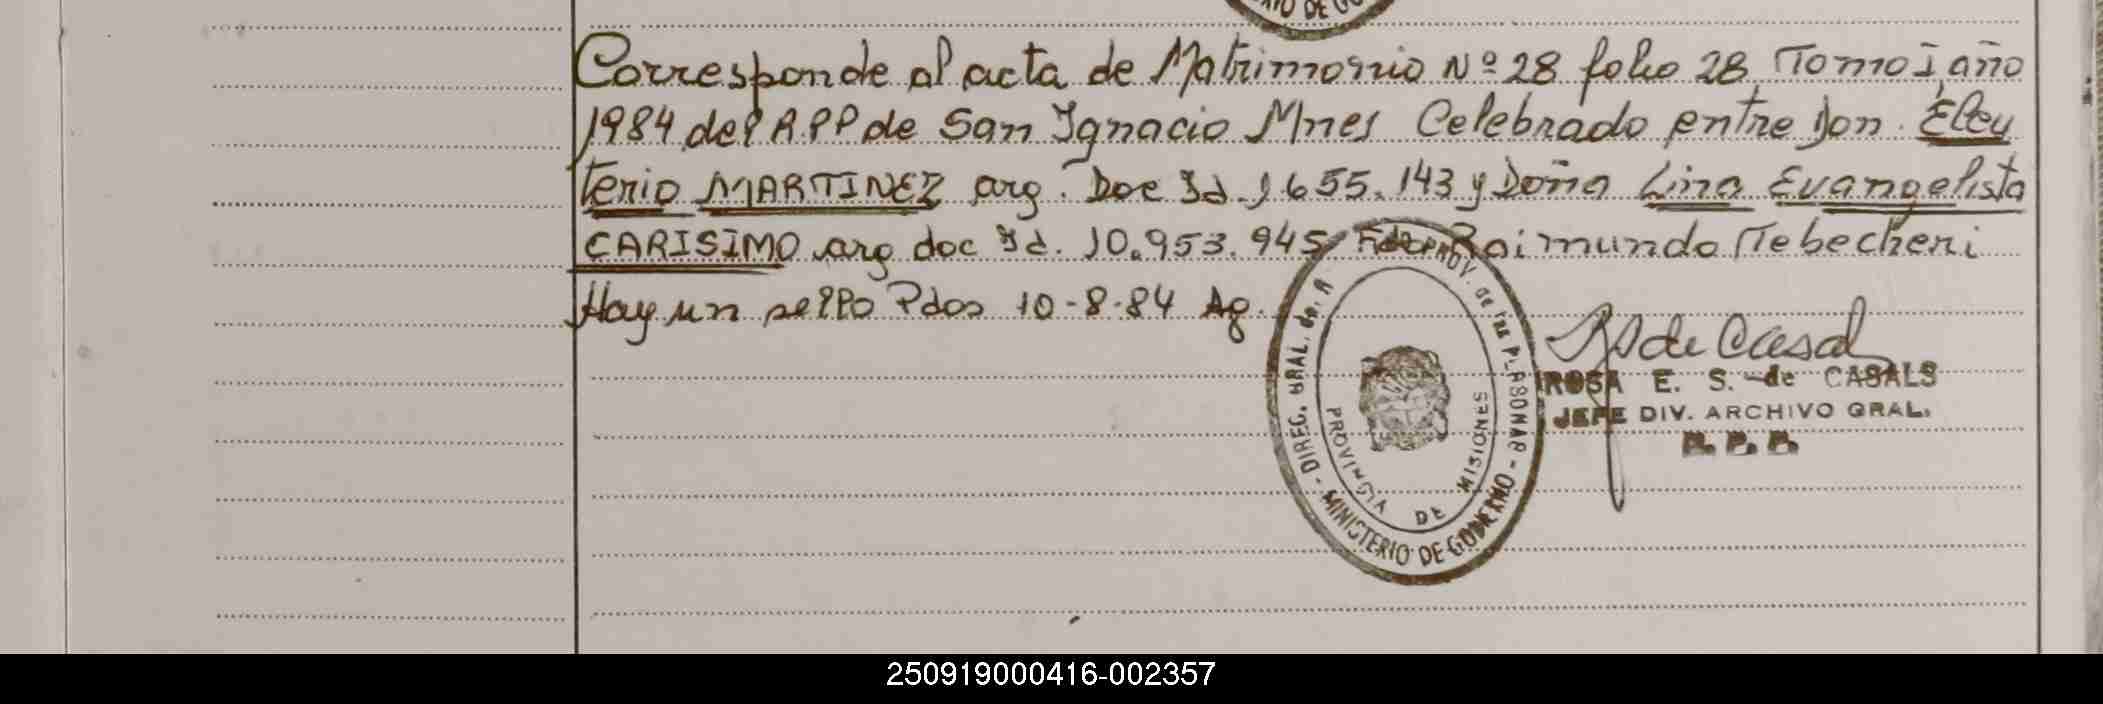 RIO DE GO
Corresponde al acta de Matrimonio Nº 28 folio 28 Tomo I, año
1984 del R.P.P de San Ignacio Mnes Celebrado entre Don Eleu
terio MARTINEZ arg. Doc Id. 1655.143 y Doña Lina Evangelista
CARISIMO arg doc Id. 10.953.945 Fdo Raimundo Tebecheri
Hay un sello Pdos 10-8-84 Ag.
DIREC. GRAL. PROV. de las PERSONAS - MINISTERIO DE GOBIERNO -
PROVINCIA DE MISIONES
de Casal
ROSA E. S. de CASALS
JEFE DIV. ARCHIVO GRAL.
250919000416-002357